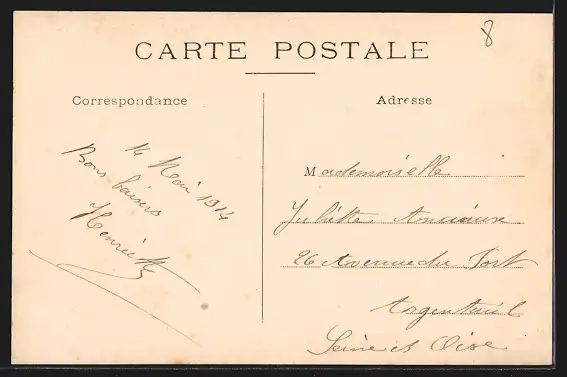 8
CARTE POSTALE
Correspondance
Adresse
14 Mai 1914
Bons baisers
Henriette
Mademoiselle
Juliette
26 Avenue du Port
Argenteuil
Seine et Oise